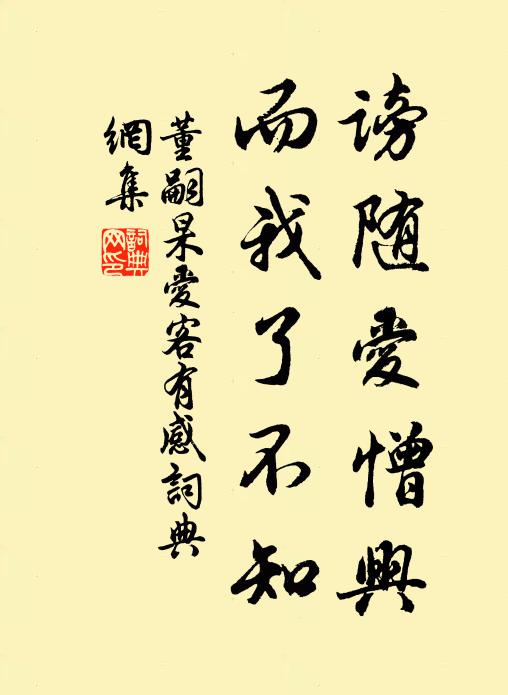 謗随愛憎興
而我了不知
董嗣杲愛客有感詞典
網集
詞典
网印